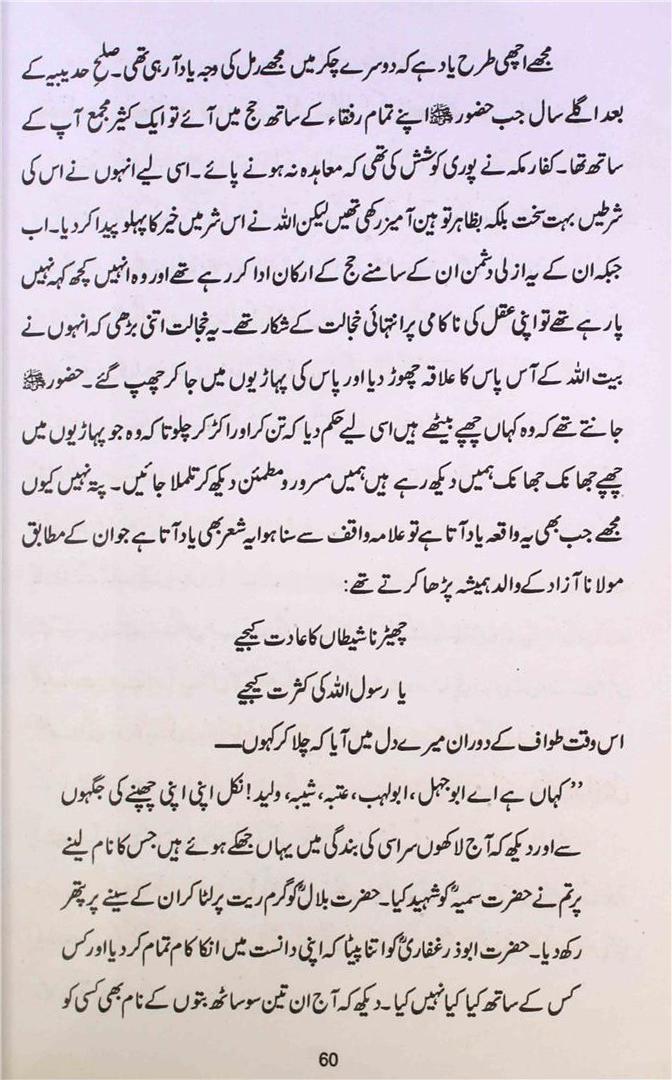 مجھے اچھی طرح یاد ہے کہ دوسرے چکر میں مجھے رمل کی وجہ یاد آ رہی تھی۔ صلح حدیبیہ کے
بعد اگلے سال جب حضور ﷺ اپنے تمام رفقاء کے ساتھ حج میں آئے تو ایک کثیر مجمع آپ کے
ساتھ تھا۔ کفار مکہ نے پوری کوشش کی تھی کہ معاہدہ نہ ہونے پائے۔ اسی لیے انہوں نے اس کی
شرطیں بہت سخت بلکہ بظاہر توہین آمیز رکھی تھیں لیکن اللہ نے اس شر میں خیر کا پہلو پیدا کر دیا۔ اب
جبکہ ان کے یہ ازلی دشمن ان کے سامنے حج کے ارکان ادا کر رہے تھے اور وہ انہیں کچھ کہہ نہیں
پا رہے تھے تو اپنی عقل کی ناکامی پر انتہائی خجالت کے شکار تھے۔ یہ خجالت اتنی بڑھی کہ انہوں نے
بیت اللہ کے آس پاس کا علاقہ چھوڑ دیا اور پاس کی پہاڑیوں میں جا کر چھپ گئے۔ حضور ﷺ
جانتے تھے کہ وہ کہاں چھپے بیٹھے ہیں اسی لیے حکم دیا کہ تن کر اور اکڑ کر چلو تا کہ وہ جو پہاڑیوں میں
چھپے جھانک جھانک ہمیں دیکھ رہے ہیں ہمیں مسرور و مطمئن دیکھ کر تلملا جائیں۔ پتہ نہیں کیوں
مجھے جب بھی یہ واقعہ یاد آتا ہے تو علامہ واقف سے سنا ہوا یہ شعر بھی یاد آتا ہے جو ان کے مطابق
مولانا آزاد کے والد ہمیشہ پڑھا کرتے تھے:
چھیڑنا شیطاں کا عادت کیجیے
یا رسول اللہ کی کثرت کیجیے
اس وقت طواف کے دوران میرے دل میں آیا کہ چلا کر کہوں——
”کہاں ہے اے ابوجہل، ابولہب، عتبہ، شیبہ، ولید! نکل اپنی اپنی چھپنے کی جگہوں
سے اور دیکھ کہ آج لاکھوں سر اسی کی بندگی میں یہاں جھکے ہوئے ہیں جس کا نام لینے
پر تم نے حضرت سمیہؓ کو شہید کیا۔ حضرت بلالؓ کو گرم ریت پر لٹا کر ان کے سینے پر پتھر
رکھ دیا۔ حضرت ابوذر غفاریؓ کو اتنا پیٹا کہ اپنی دانست میں انکا کام تمام کر دیا اور کس
کس کے ساتھ کیا کیا نہیں کیا۔ دیکھ کہ آج ان تین سو ساٹھ بتوں کے نام بھی کسی کو
60